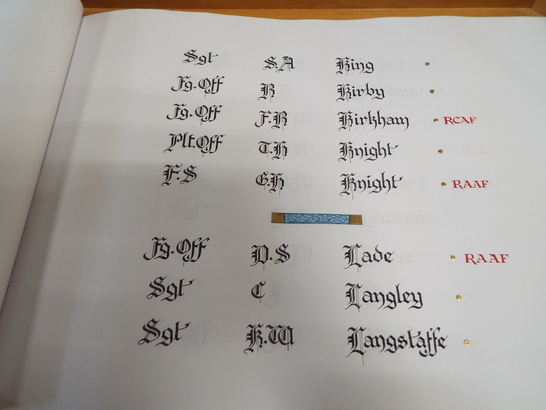 Sgt S.A King
Fg.Off R Kirby
Fg.Off F.B Kirkham RCAF
Plt.Off T.H Knight
F.S G.H Knight RAAF
Fg.Off D.S Lade RAAF
Sgt C Langley
Sgt K.W Langstaffe